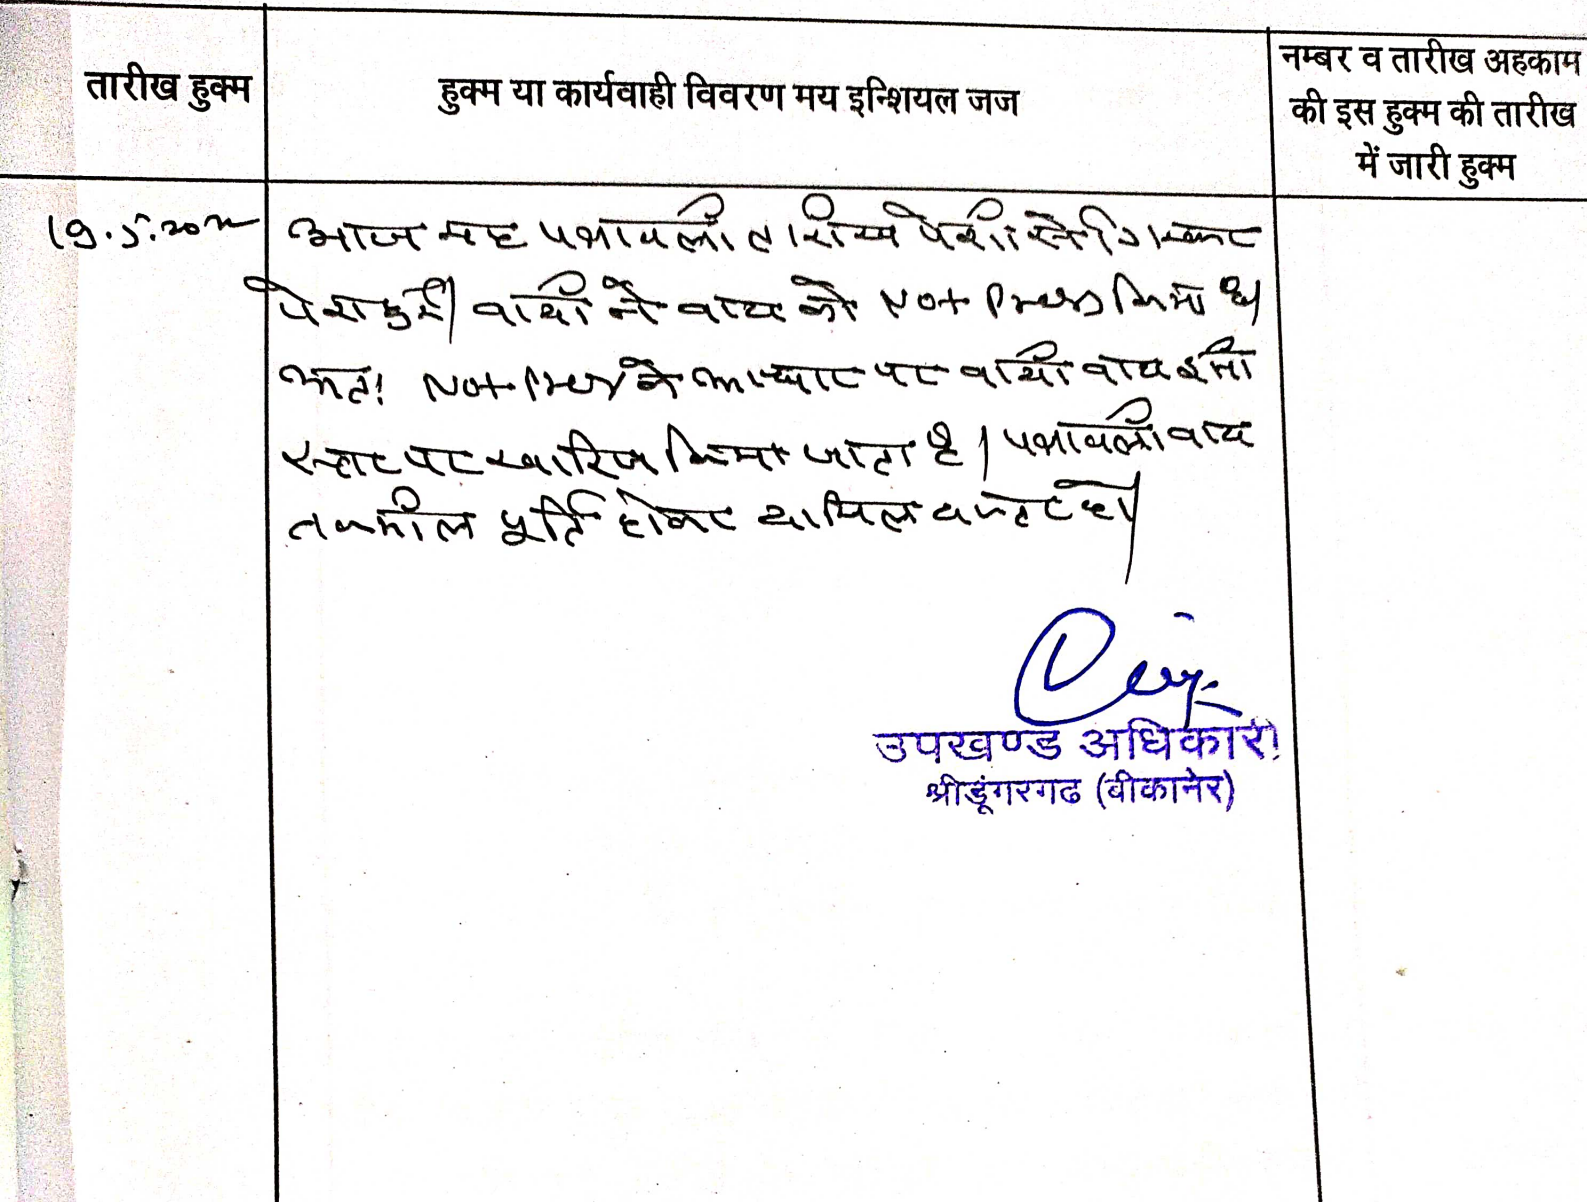 तारीख हुक्म
हुक्म या कार्यवाही विवरण मय इन्शियल जज
नम्बर व तारीख अहकाम
की इस हुक्म की तारीख
में जारी हुक्म
19.5.20
आज यह पत्रावली तारीख पेशी से
पेश हुई। वादी ने वाद को Not Press किया है।
अतः Not Press के आधार पर वादी वाद इसी
स्तर पर खारिज किया जाता है। पत्रावली वाद
तकमील पूर्ति होकर दाखिल दफ्तर हो।
उपखण्ड अधिकारी
श्रीडूंगरगढ (बीकानेर)